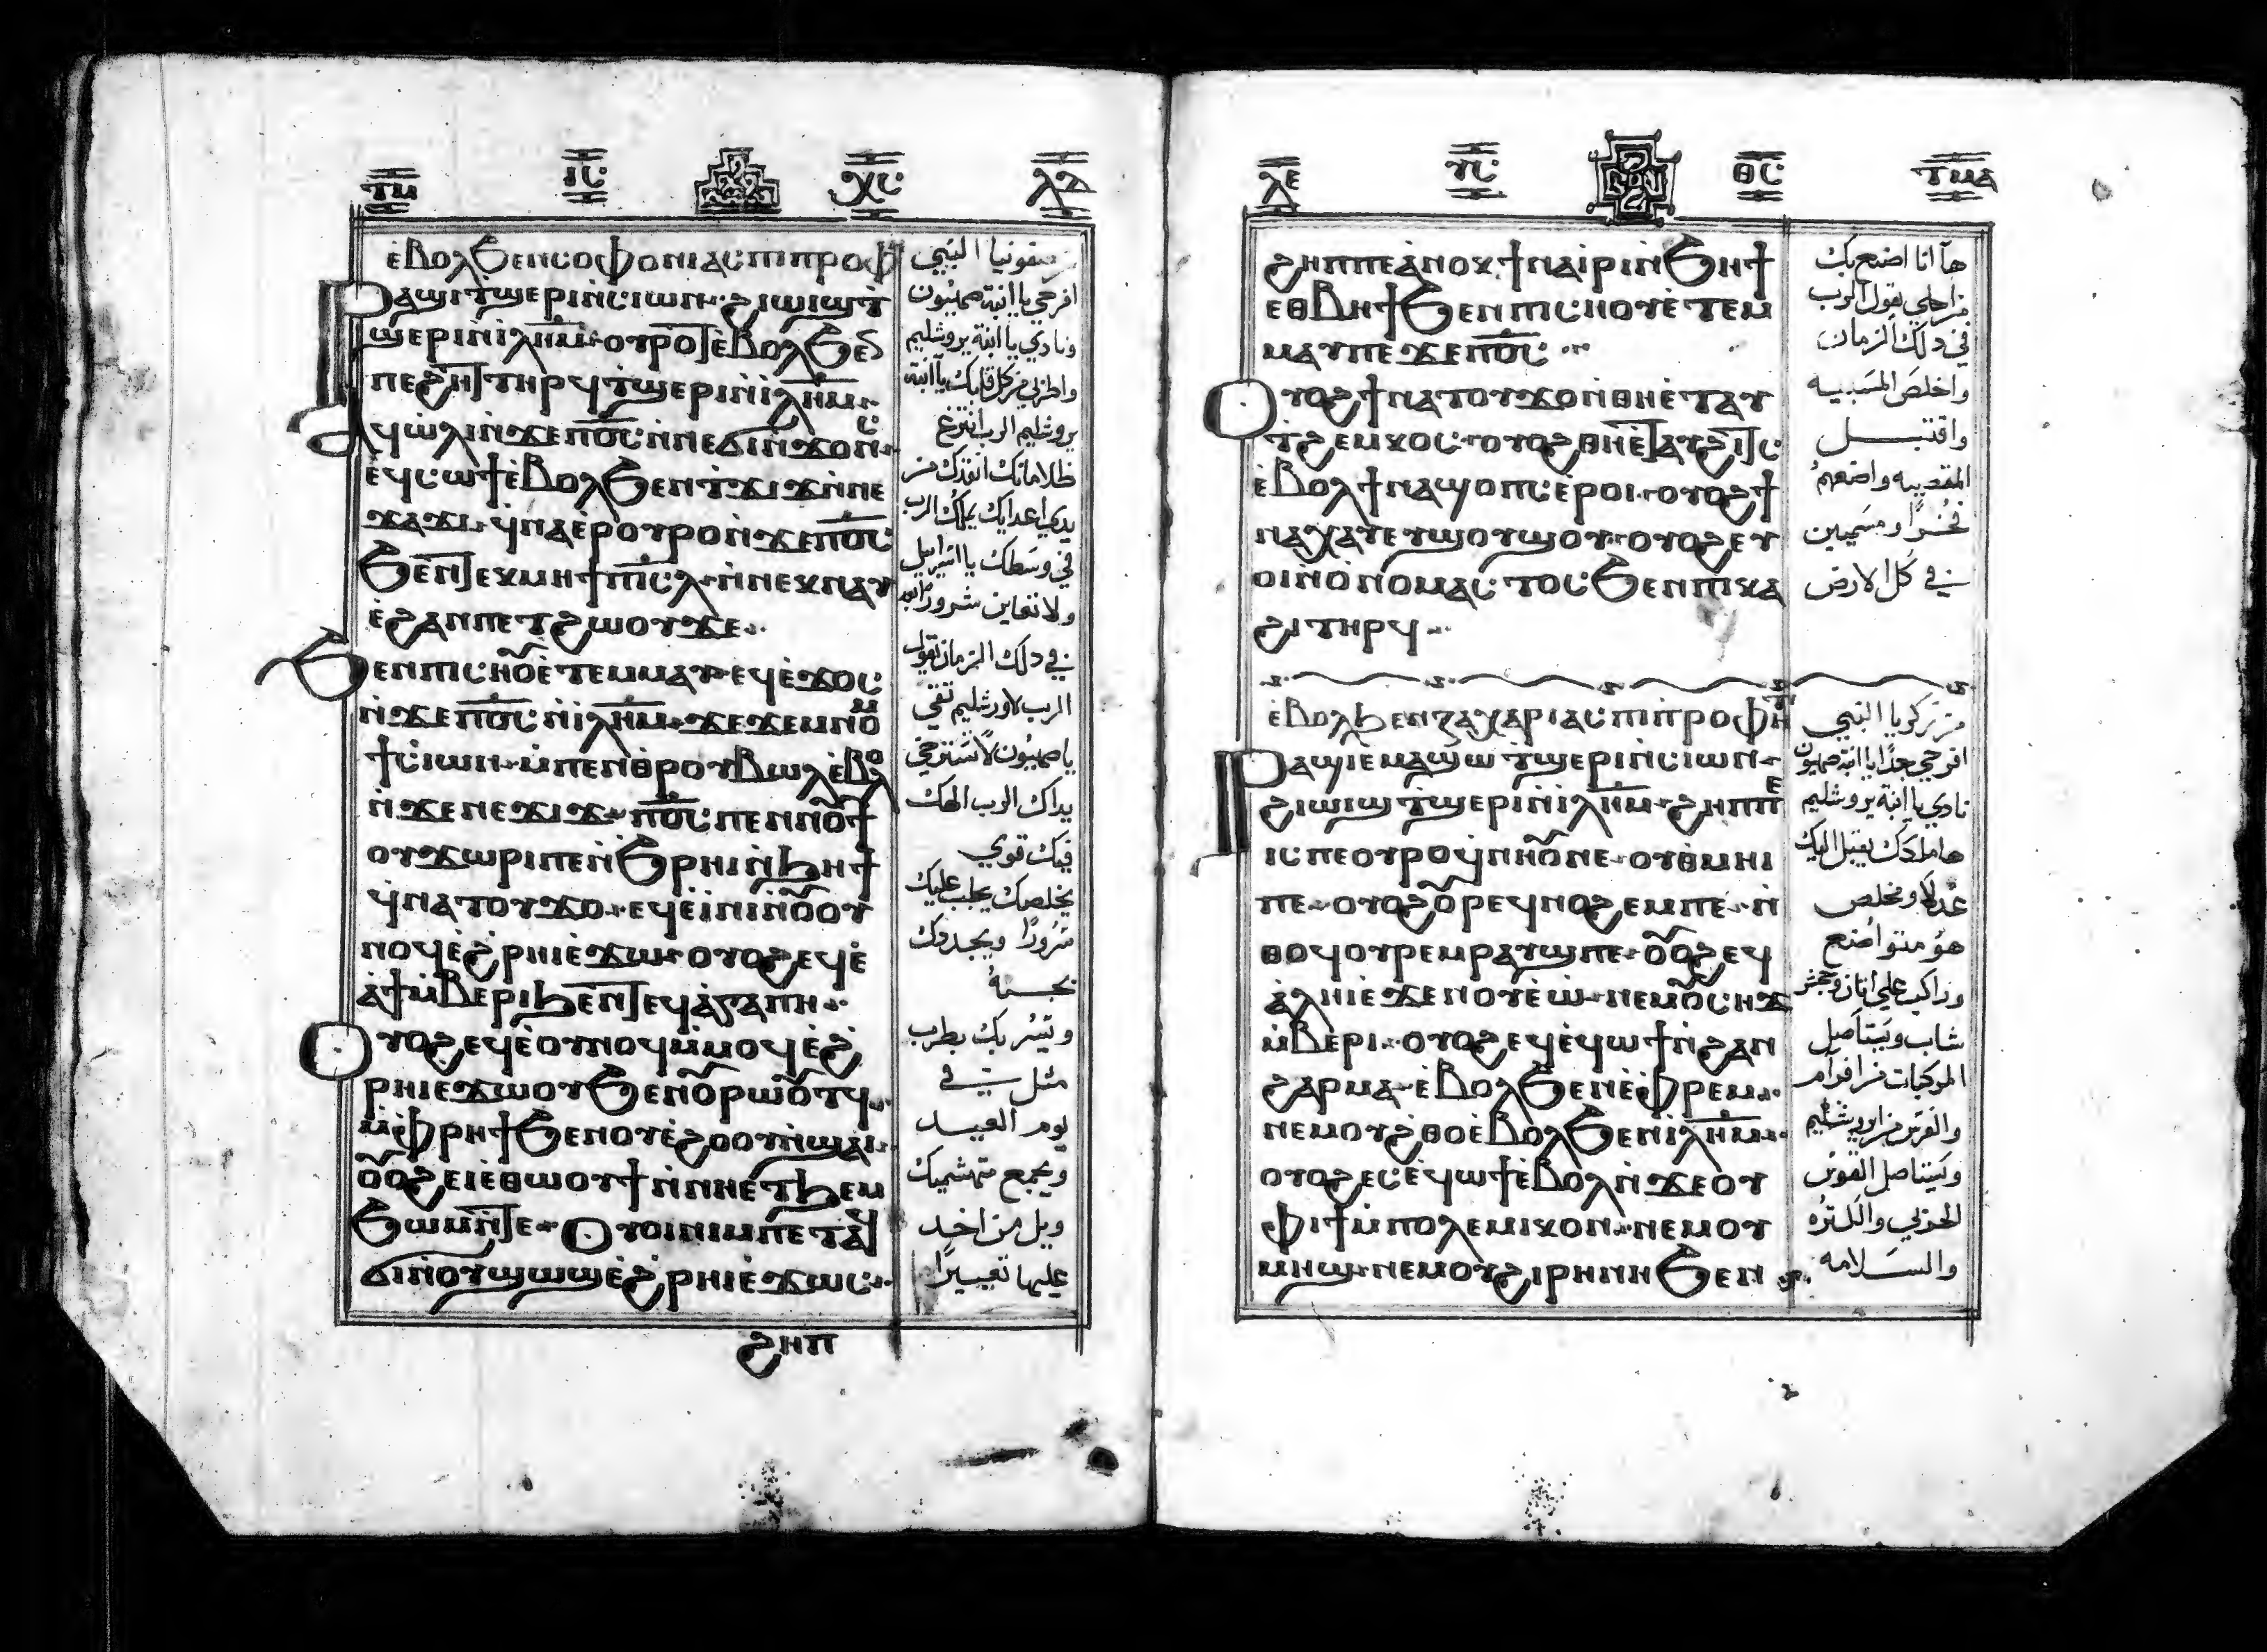 ⲧⲙ ⲓⲥ ⲭⲥ ⲗⲇ
ⲉ̀ⲃⲟⲗϧⲉⲛⲥⲟⲫⲟⲛⲓⲁⲥⲡⲓⲡⲣⲟⲫ
ⲣⲁϣⲓⲧ̀ϣⲉⲣⲓⲛ̀ⲥⲓⲱⲛ ϩⲓⲱⲓϣⲧ̀
ϣⲉⲣⲓⲛ̀ⲓⲗⲏⲙ ⲟⲩⲣⲟⲧⲉ̀ⲃⲟⲗϧⲉⲛ
ⲡⲉϩⲏⲧⲧⲏⲣϥⲧ̀ϣⲉⲣⲓⲛ̀ⲓⲗⲏⲙ
ⲁϥⲱ̀ⲗⲓⲛ̀ϫⲉⲡⲟ̅ⲥ̅ⲛ̀ⲛⲉϭⲓⲛϫⲟⲛⲥ
ⲉϥⲥⲱϯⲉ̀ⲃⲟⲗϧⲉⲛⲧ̀ϫⲓϫⲛ̀ⲛⲉ
ϫⲁϫⲓ ϥ̀ⲛⲁⲉⲣⲟⲩⲣⲟⲛ̀ϫⲉⲡⲟ̅ⲥ̅
ϧⲉⲛⲧⲉⲕⲙⲏϯⲡⲓⲥ̅ⲗ̅ ⲛ̀ⲛⲉⲕⲛⲁⲩ
ⲉϩⲁⲛⲡⲉⲧϩⲱⲟⲩϫⲉ
ϧⲉⲛⲡⲓⲥⲏⲟⲩⲉ̀ⲧⲉⲙⲙⲁⲩ ⲉϥⲉ̀ϫⲟⲥ
ⲛ̀ϫⲉⲡⲟ̅ⲥ̅ⲛ̀ⲓⲗⲏⲙ ϫⲉϫⲉⲙⲛⲟⲙ
ϯⲥ̀ⲓⲱⲛ ⲙ̀ⲡⲉⲛⲑ̀ⲣⲟⲩⲃⲱⲗⲉ̀ⲃⲟⲗ
ⲛ̀ϫⲉⲛⲉϫⲓϫ ⲡⲟ̅ⲥ̅ⲡⲉⲛⲛⲟⲩϯ
ⲟⲩϫⲱⲣⲓⲡⲉⲛ̀ϧⲣⲏⲓⲛ̀ϧⲏϯ
ϥ̀ⲛⲁⲧⲟⲩϫⲟ ⲉϥⲉ̀ⲓ̀ⲛⲓⲛ̀ⲟⲩⲟⲩ
ⲛⲟϥⲉ̀ϩⲣⲏⲓⲉ̀ϫⲱ ⲟⲩⲟϩⲉϥⲉ̀
ⲁ̀ϯⲙ̀ⲃⲉⲣⲓϧⲉⲛⲧⲉϥⲁ̀ⲅⲁⲡⲏ
ⲟⲩⲟϩⲉϥⲉ̀ⲟⲩⲛⲟϥⲙ̀ⲙⲟϥⲉ̀ϩ̀
ⲣⲏⲓⲉϫⲱⲟⲩϧⲉⲛⲟⲩⲣⲱⲟⲩⲧϥ
ⲙ̀ⲫⲣⲏϯϧⲉⲛⲟⲩⲉ̀ϩⲟⲟⲩⲛ̀ϣⲁⲓ
ⲟⲩⲟϩⲉⲓⲉ̀ⲑⲱⲟⲩϯⲛ̀ⲛⲏⲉⲧϧⲉⲙ
ϧⲱⲙⲛ̀ⲧⲉ ⲟⲩⲟⲓⲛⲓⲙⲡⲉⲧⲁϥ
ϭⲓⲛ̀ⲟⲩϣⲱϣⲉ̀ϩⲣⲏⲓⲉ̀ϫⲱⲥ
ϩⲏⲡ
من صفونيا النبي
افرحي يا ابنة صهيون
ونادي يا ابنة يروشليم
واطربي من كل قلبك يا ابنة
يروشليم الرب انتزع
ظلاماتك انقذك من
يدي اعدايك يملك الرب
في وسطك يا اسراييل
ولا تعاين شرور ايضا
في دلك الزمان يقول
الرب لاورشليم تقي
يا صهيون لا تسترخي
يداك الرب الهك
فيك قوي
يخلصك يجلب عليك
سرورًا ويجددك
بحسبه
وتيسر بك بطرب
مثل في
يوم العيد
ويجمع متهشميك
ويل من اخد
عليها تعييرًا
ⲗⲉ ⲩⲥ ⲑⲥ ⲧⲙⲁ
ϩⲏⲡⲡⲉⲁ̀ⲛⲟⲕ ϯⲛⲁⲓ̀ⲣⲓⲛ̀ϧⲏϯ
ⲉⲑⲃⲏϯϧⲉⲛⲡⲓⲥⲏⲟⲩⲉ̀ⲧⲉⲙ
ⲙⲁⲩⲡⲉϫⲉⲡⲟ̅ⲥ̅
ⲟⲩⲟϩϯⲛⲁⲧⲟⲩϫⲟⲛ̀ⲑⲏⲉ̀ⲧⲁⲩ
ⲧ̀ϩⲉⲙⲕⲟⲥ ⲟⲩⲟϩⲑⲏⲉ̀ⲧⲁⲩϩⲓⲧⲥ
ⲉ̀ⲃⲟⲗϯⲛⲁϣⲟⲡⲥⲉ̀ⲣⲟⲓ ⲟⲩⲟϩϯ
ⲛⲁⲭⲁⲩⲉⲩϣⲟⲩϣⲟⲩ ⲟⲩⲟϩⲉⲩ
ⲟⲓⲛ̀ⲟ̀ⲛⲟⲙⲁⲥⲧⲟⲥϧⲉⲛⲡⲓⲕⲁ
ϩⲓⲧⲏⲣϥ
ⲉ̀ⲃⲟⲗϧⲉⲛⲍⲁⲭⲁⲣⲓⲁⲥⲡⲓⲡ̀ⲣⲟⲫⲏⲧ
ⲣⲁϣⲓⲉⲙⲁϣⲱ ⲧ̀ϣⲉⲣⲓⲛ̀ⲥⲓⲱⲛ
ϩⲓⲱⲓϣ ⲧ̀ϣⲉⲣⲓⲛ̀ⲓⲗⲏⲙ ϩⲏⲡⲡⲉ
ⲓⲥⲡⲉⲟⲩⲣⲟϥ̀ⲛⲏⲟⲩⲛⲉ ⲟⲩⲑ̀ⲙⲏⲓ
ⲡⲉ ⲟⲩⲟϩⲟⲩⲣⲉϥⲛⲟϩⲉⲙⲡⲉ ⲛ̀
ⲑⲟϥⲟⲩⲣⲉⲙⲣⲁⲩϣⲡⲉ ⲟⲩⲟϩⲉϥ
ⲁ̀ⲗⲏⲓⲉ̀ϫⲉⲛⲟⲩⲉ̀ⲱ ⲛⲉⲙⲟⲩⲥⲏϫ
ⲙ̀ⲃⲉⲣⲓ ⲟⲩⲟϩⲉϥⲉ̀ϥⲱϯⲛ̀ϩⲁⲛ
ϩⲁⲣⲙⲁ ⲉ̀ⲃⲟⲗϧⲉⲛⲉ̀ⲫⲣⲉⲙ
ⲛⲉⲙⲟⲩϩ̀ⲑⲟⲉ̀ⲃⲟⲗϧⲉⲛⲓⲗⲏⲙ
ⲟⲩⲟϩⲉⲥⲉ̀ϥⲱϯⲉ̀ⲃⲟⲗⲛ̀ϫⲉⲟⲩ
ⲫⲓϯⲙ̀ⲡⲟⲗⲉⲙⲓⲕⲟⲛ ⲛⲉⲙⲟⲩ
ⲙⲏϣ ⲛⲉⲙⲟⲩϩⲓⲣⲏⲛⲏϧⲉⲛ
هآ انا اصنع بك
من اجلي يقول الرب
في دلك الزمان
واخلص المسبيه
واقتبل
المقصيه واضعهم
فخرًا ومسميين
في كل الارض
من زكريا النبي
افرحي جدًا يا ابنة صهيون
نادي يا ابنة يروشليم
ها ملكك يقبل اليك
عدلًا ومخلص
هو متواضع
وراكب علي اتان وجحش
شاب ويستاصل
المركبات من افرام
والفرس من اورشليم
ويستاصل القوس
الحربي والكثره
والسلامه